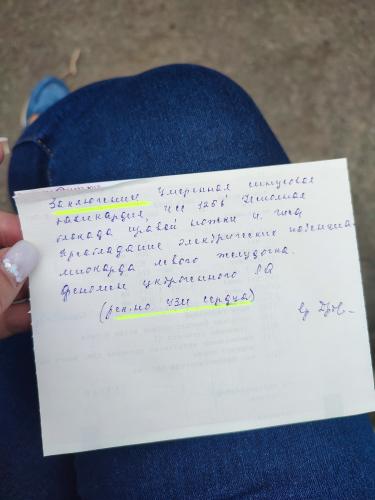 Заключение Умеренная синусовая
тахикардия, чсс 125 в' Неполная
блокада правой ножки п. Гиса
Преобладание электрических потенциал
миокарда левого желудочка.
Феномен укороченного PQ
(рек-но УЗИ сердца)
вр